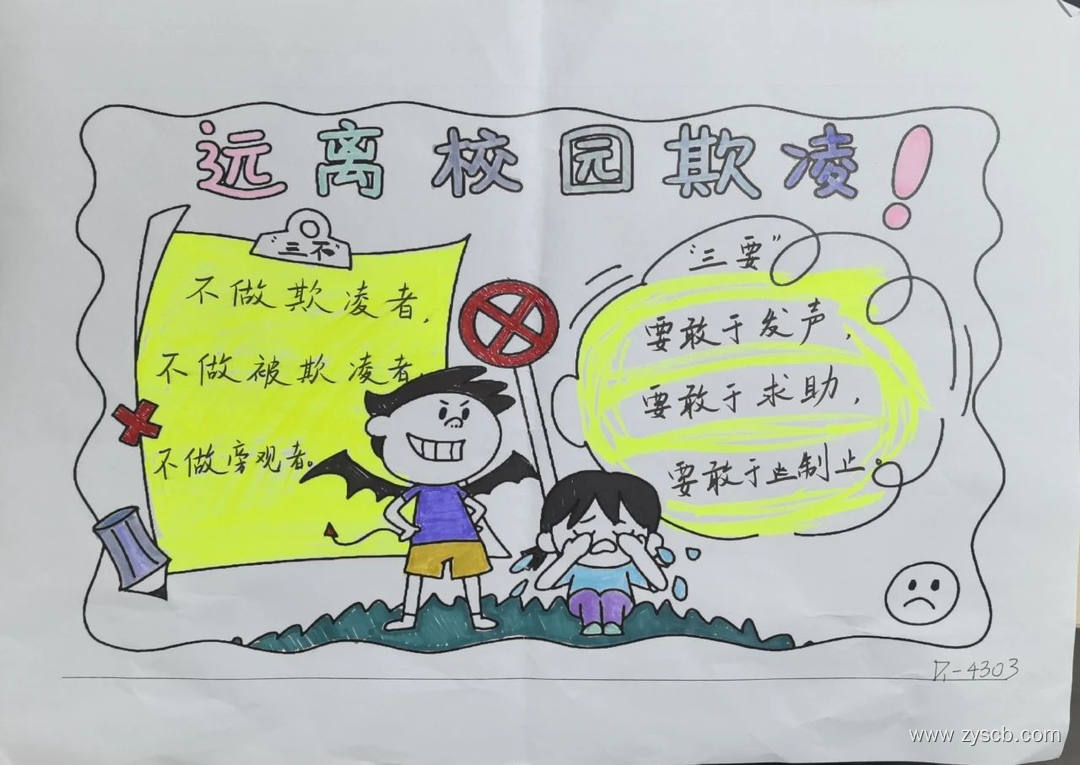 远离校园欺凌！
"三不"
不做欺凌者，
不做被欺凌者，
不做旁观者。
"三要"
要敢于发声，
要敢于求助，
要敢于制止。
-4303
www.zyscb.com